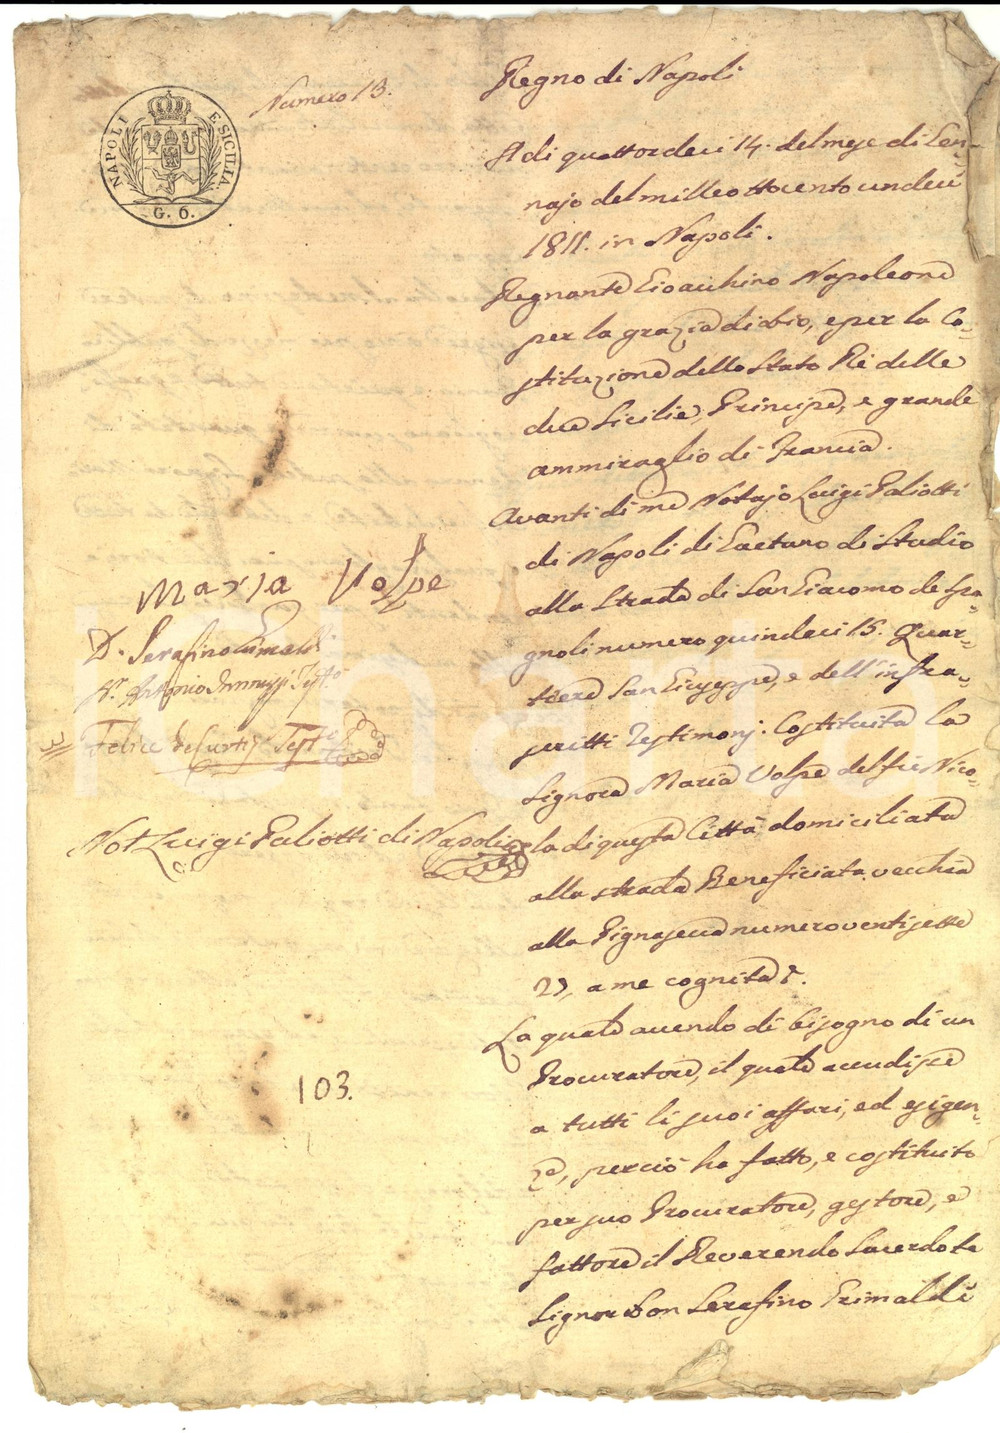 NAPOLI E SICILIA.
G. 6.
Numero 13.
Regno di Napoli
A di quattordeci 14. del mese di Gen-
najo del mille ottocento undeci
1811. in Napoli.
Regnante Gioacchino Napoleone
per la grazia di dio, e per la Co-
stituzione dello Stato Rè delle
due Sicilie, Principe, e grande
ammiraglio di Francia.
Avanti di me Notajo Luigi Paliotti
di Napoli di Gaetano di Studio
alla Strada di San Giacomo de Spa-
gnoli numero quindeci 15. Quar-
tiere San Giuseppe, e dell'infra-
scritti Testimonj. Costituita la
Signora Maria Volpe del fu Nico-
la di questa Città domiciliata
alla strada Beneficiata vecchia
alla Pignasecca numero ventisette
27, a me cognita.
La quale avendo di bisogno di un
Procuratore, il quale accudisce
a tutti li suoi affari, ed esigen-
ze, perciò ha fatto, e costituito
per suo Procuratore, gestore, e
fattore il Reverendo Sacerdote
Signor Don Serafino Grimaldi
Maria Volpe
D. Serafino Grimaldi
Antonio Iannuzzi Testo
Felice de Curtis Testo
Not Luigi Paliotti di Napoli
103.